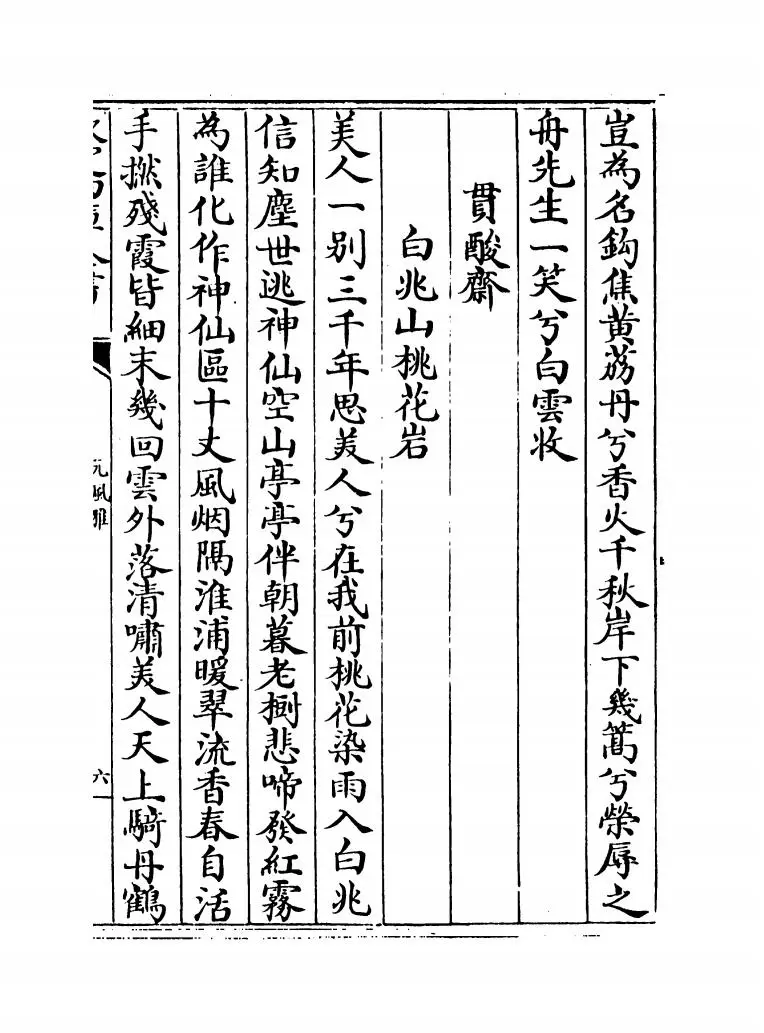 豈為名鈎焦黄荔丹兮香火千秋岸下幾篙兮榮辱之
舟先生一笑兮白雲收
貫酸齋
白兆山桃花岩
美人一别三千年思美人兮在我前桃花染雨入白兆
信知塵世逃神仙空山亭亭伴朝暮老樹悲啼發紅霧
為誰化作神仙區十丈風烟隔淮浦暖翠流香春自活
手撚殘霞皆細末幾回雲外落清嘯美人天上騎丹鶴
元風雅
六